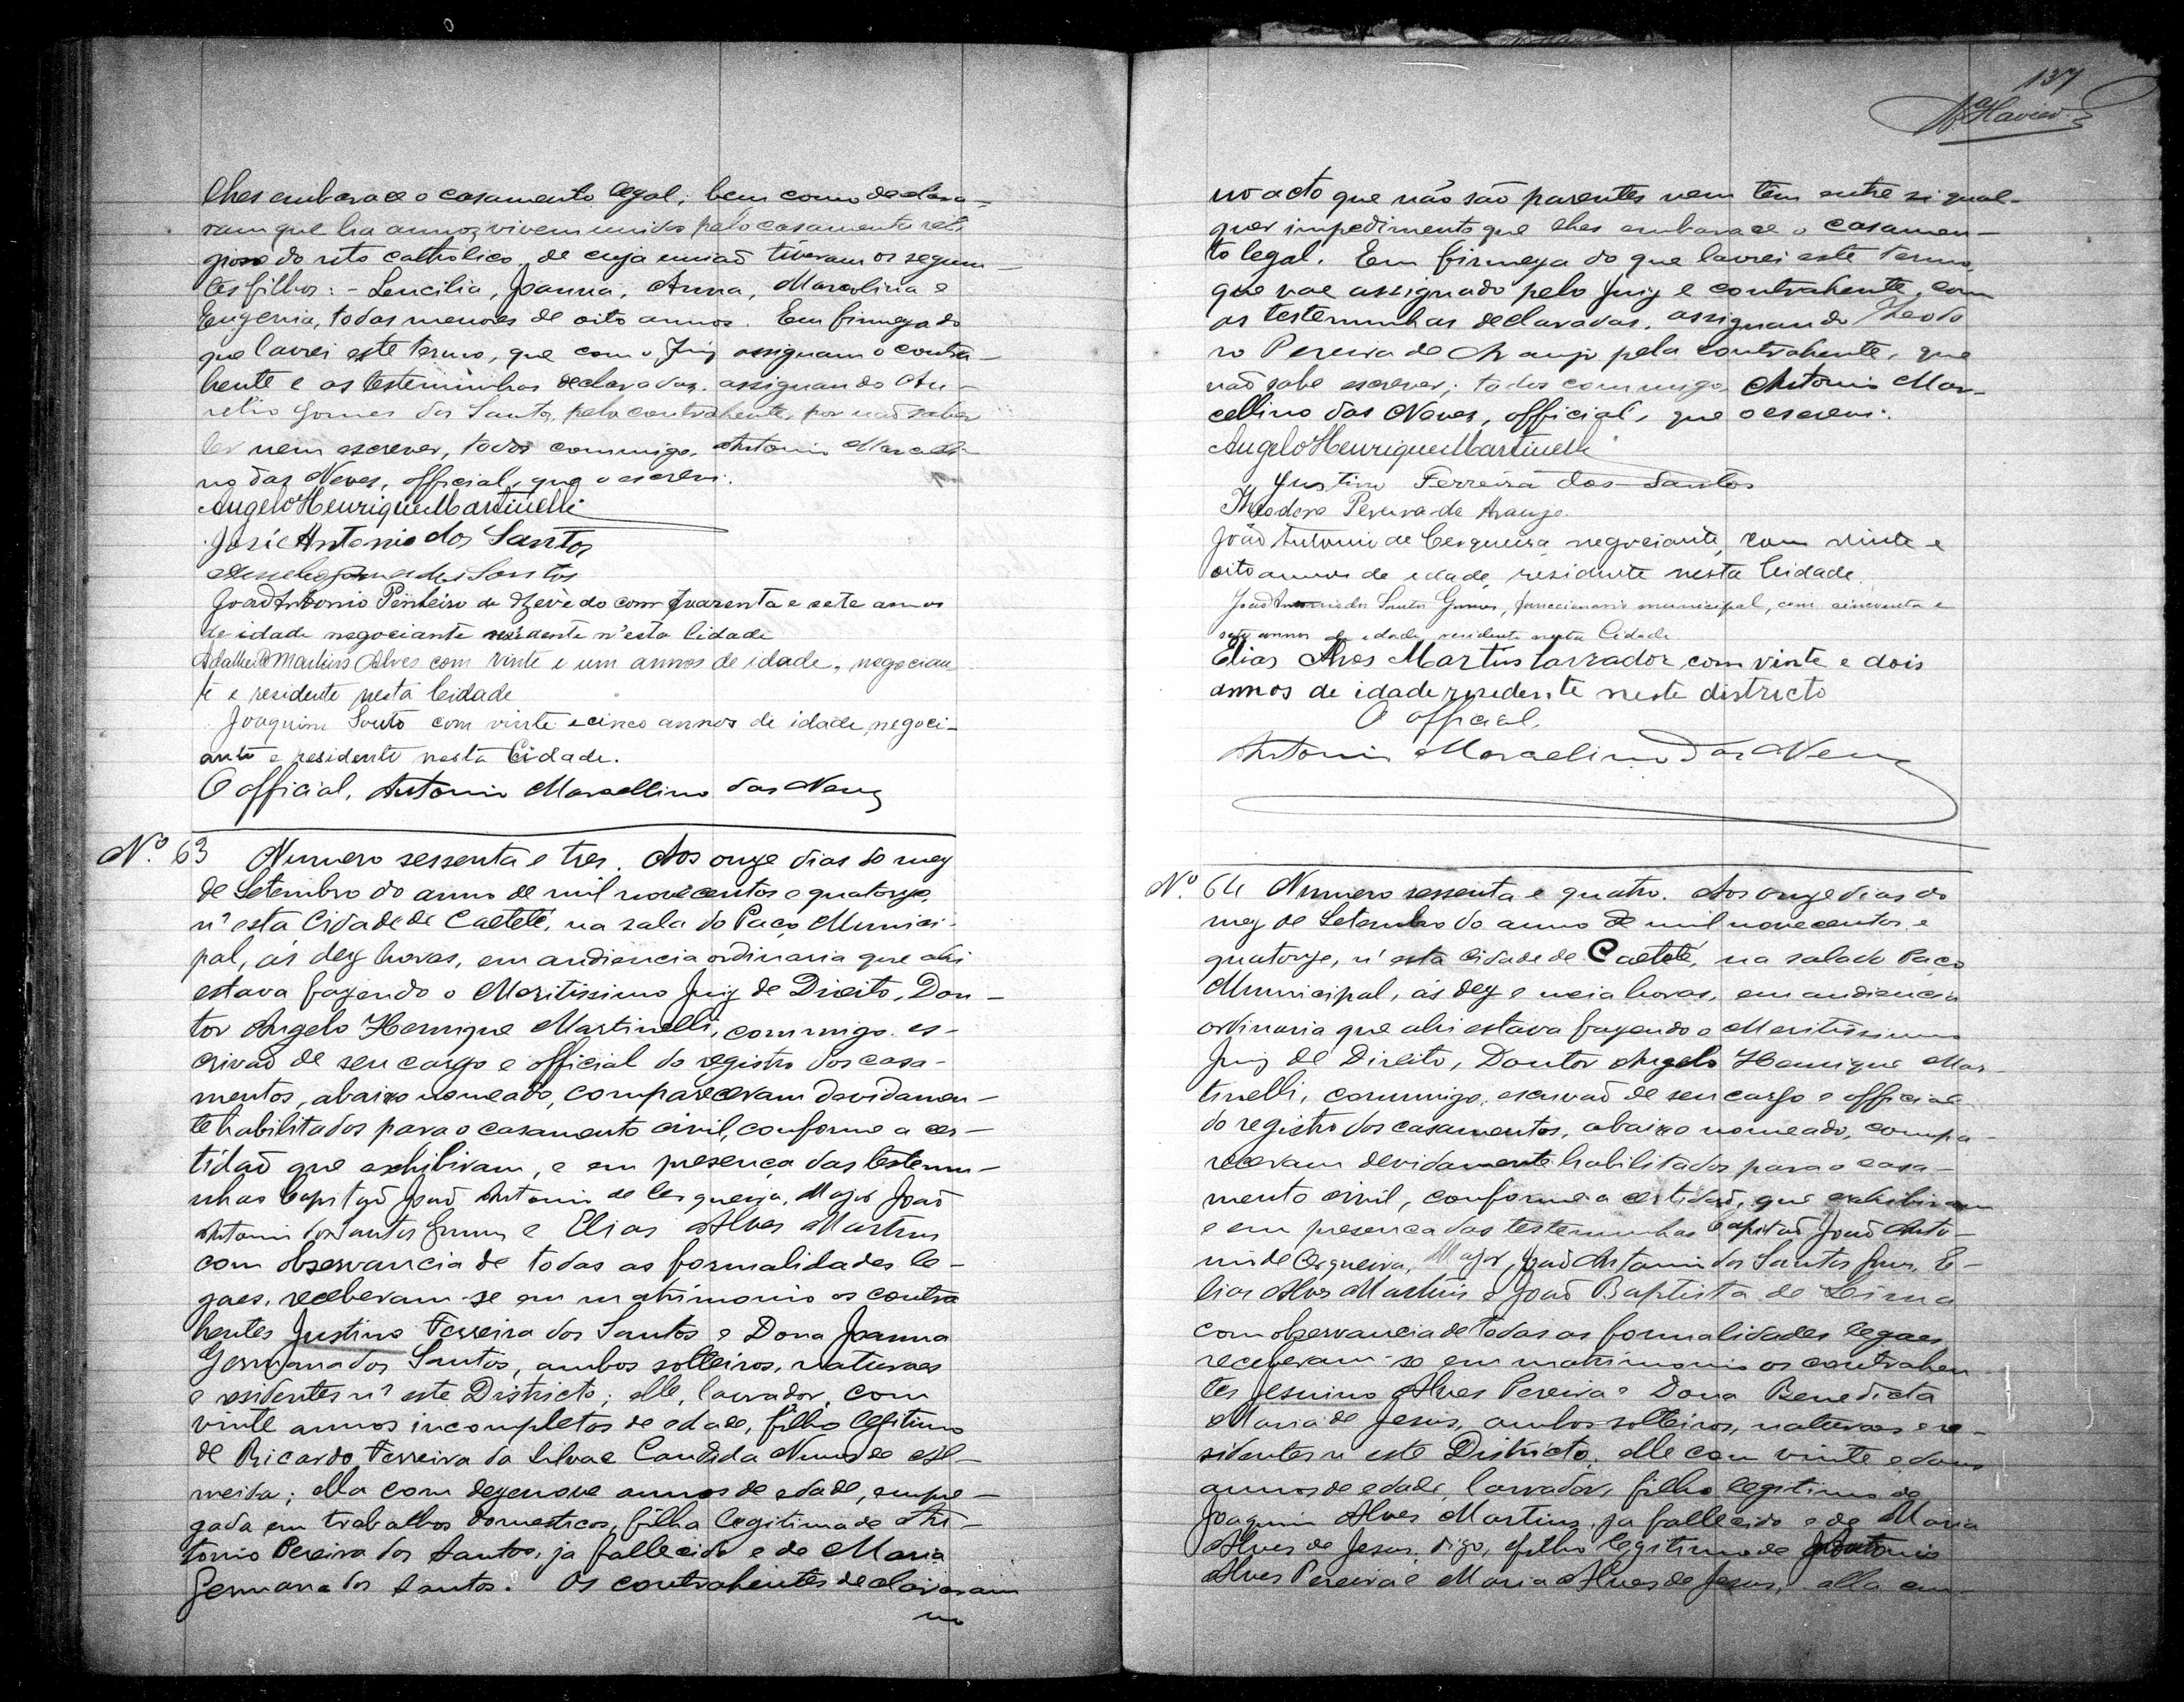 lhes embarace o casamento legal; bem como declara-
ram que ha annos vivem unidos pelo casamento reli
gioso do rito catholico, de cuja uniaõ tiveram os seguin-
tes filhos: - Lencilia, Joanna, Anna, Marcolina e
Eugenia, todas menores de oito annos. Em firmeza do
que lavrei este termo, que com o Juiz assignam o contra-
hente e as testeminhas declaradas, assignando Au-
relio Gomes dos Santos, pela contrahente, por naõ saber
ler nem escrever, todos commigo, Antonio Marcelli-
no das Neves, official, que o escrevi.
Angelo Henrique Martinelli
José Antonio dos Santos
dos Santos
João Antonio Pinheiro de Azevedo com quarenta e sete annos
de idade negociante residente n'esta Cidade
Adalberto Martins Alves com vinte e um annos de idade, negocian
te e residente nesta Cidade
Joaquim Souto com vinte e cinco annos de idade, negoci-
ante e residente nesta Cidade.
O official, Antonio Marcellino das Neves
Nº. 63 Numero sessenta e tres. Aos onze dias do mez
de Setembro do anno de mil novecentos e quatorze,
n'esta Cidade de Caeteté, na sala do Paço Munici-
pal, ás dez horas, em audiencia ordinaria que ahi
estava fazendo o Meritissimo Juiz de Direito, Dou-
tor Angelo Henrique Martinelli, commigo es-
crivaõ de seu cargo e official do registro dos casa-
mentos, abaixo nomeado, compareceram devidamen-
te habilitados para o casamento civil, conforme a cer-
tidaõ que exhibiram, e em presença das testemu-
nhas Capitaõ Joaõ Antonio de Cerqueira, Major Joaõ
Antonio dos Santos Gumes e Elias Alves Martins
com observancia de todas as formalidades le-
gaes, receberam-se em matrimonio os contra
hentes Justino Ferreira dos Santos e Dona Joanna
Germana dos Santos, ambos solteiros, naturaes
e residentes n'este Districto; elle, lavrador, com
vinte annos incompletos de edade, filho legitimo
de Ricardo Ferreira da Silva e Candida Nunes de Al-
meida; ella com dezenove annos de edade, empre-
gada em trabalhos domesticos, filha legitima de An-
tonio Pereira dos Santos, ja fallecido e de Maria
Germana dos Santos. Os contrahentes declararam
no
137
no acto que não são parentes nem têm entre si qual-
quer impedimento que lhes embarace o casamen-
to legal. Em firmeza do que lavrei este termo,
que vae assignado pelo Juiz e contrahente, com
as testemunhas declaradas, assignando Theodo
ro Pereira de Araujo pela contrahente, que
naõ sabe escrever; todos commigo, Antonio Mar-
cellino das Neves, official, que o escrevi.
Angelo Henrique Martinelli
Justino Ferreira dos Santos
Theodoro Pereira de Araujo.
João Antonio de Cerqueira, negociante, com vinte e
oito annos de edade, residente nesta Cidade.
João Antonio dos Santos Gumes, funccionario municipal, com cincoenta e
sete annos de edade, residente nesta Cidade
Elias Alves Martins lavrador com vinte e dois
annos de idade rezedente neste districto
O official,
Antonio Marcelino das Neves
Nº. 64 Numero sessenta e quatro. Aos onze dias do
mez de Setembro do anno de mil novecentos e
quatorze, n'esta Cidade de Caeteté, na sala do Paço
Municipal, ás dez e meia horas, em audiencia
ordinaria que ahi estava fazendo o Meritissimo
Juiz de Direito, Doutor Angelo Henrique Mar-
tinelli, commigo, escrivaõ de seu cargo e official
do registro dos casamentos, abaixo nomeado, compa-
receram devidamente habilitados para o casa-
mento civil, conforme a certidaõ, que exhibiram
e em presença das testemunhas Capitaõ Joaõ Anto-
nio de Cerqueira, Major, Joaõ Antonio dos Santos Gumes, E-
lias Alves Martins e Joaõ Baptista de Lima
com observancia de todas as formalidades legaes,
receberam-se em matrimonio os contrahen-
tes Jesuino Alves Pereira e Dona Benedicta
Maria de Jesus, ambos solteiros, naturaes e re-
sidentes n'este Districto, elle com vinte e dous
annos de edade, lavrador, filho legitimo de
Joaquim Alves Martins, ja fallecido e de Maria
Alves de Jesus, digo, filho legitimo de Antonio
Alves Pereira e Maria Alves de Jesus, ella em-